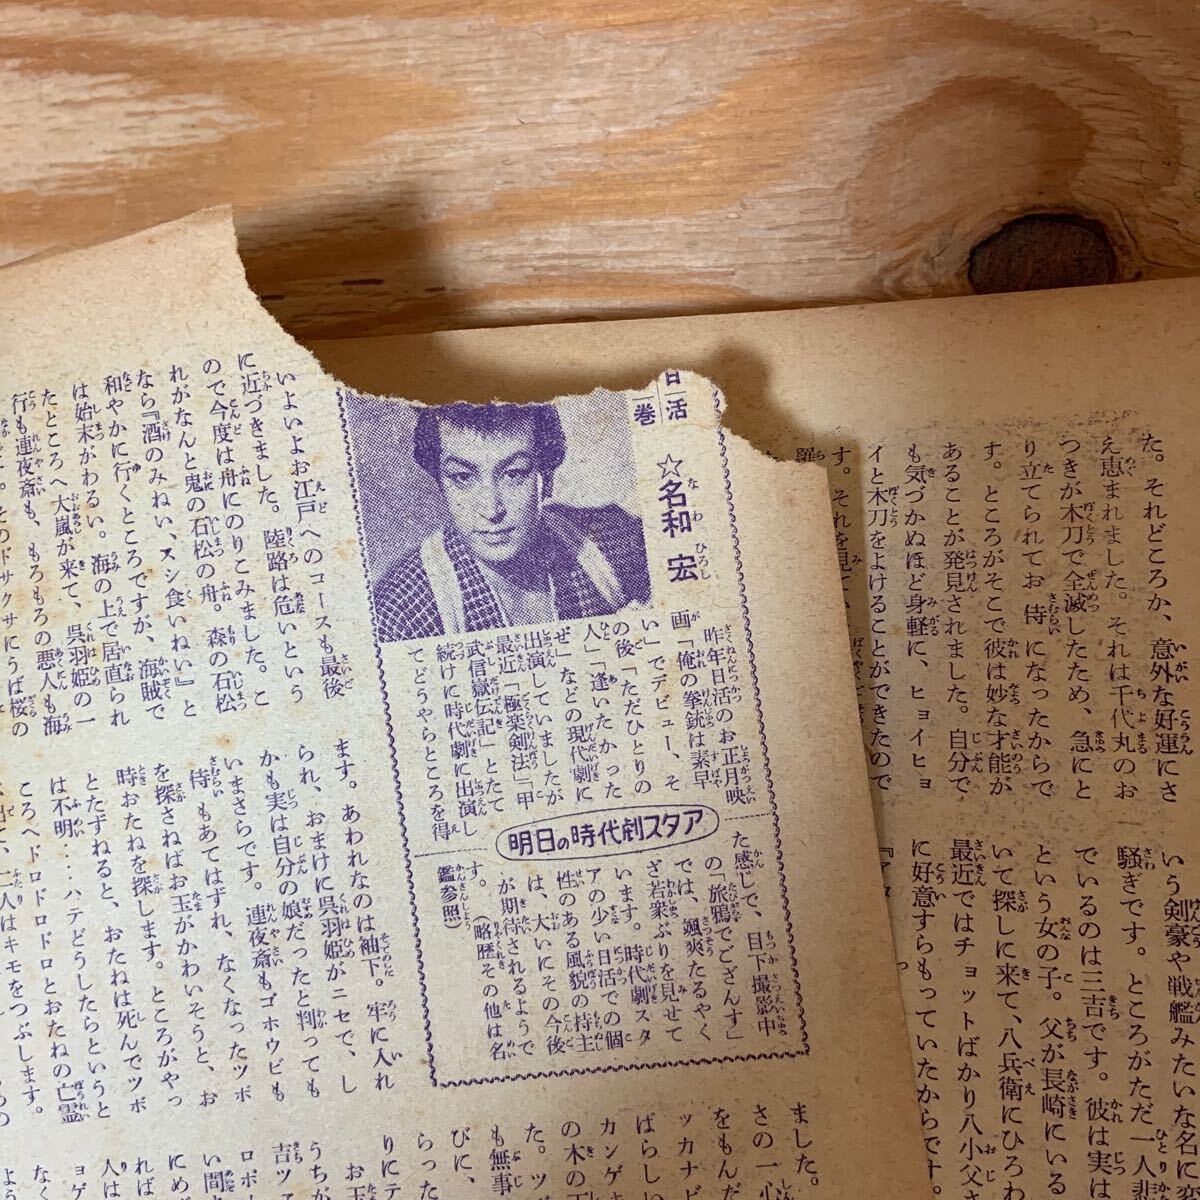 た。それどころか、意外な好運にさ
え恵まれました。それは千代丸のお
つきが木刀で全滅したため、急にと
り立てられてお侍になったからで
す。ところがそこで彼は妙な才能が
あることが発見されました。自分で
も気づかぬほど身軽に、ヒョイヒョ
イと木刀をよけることができたので
す。それを見て
いう剣豪や戦艦みたいな名に
騒ぎです。ところがただ一人悲
でいるのは三吉です。彼は実は
という女の子。父が長崎にいる
いて探しに来て、八兵衛にひろわ
最近ではチョットばかり八小父さ
に好意すらもっていたからです。
日活
巻
☆名和宏
昨年日活のお正月映
画「俺の拳銃は素早
い」でデビュー、そ
の後「ただひとりの
人」「逢いたかった
ぜ」などの現代劇に
出演していましたが
最近「極楽剣法」「甲
武信嶽伝記」とたて
続けに時代劇に出演し
てどうやらところを得
明日の時代劇スタア
た感じで、目下撮影中
の「旅鴉でござんす」
では、颯爽たるやく
ざ若衆ぶりを見せて
います。時代劇スタ
アの少い日活での個
性のある風貌の持主
は、大いにその今後
が期待されるようで
す。(略歴その他は名
鑑参照)
いよいよお江戸へのコースも最後
に近づきました。陸路は危いという
ので今度は舟にのりこみました。こ
れがなんと鬼の石松の舟。森の石松
なら『酒のみねい、スシ食いねい』と
和やかに行くところですが、海賊で
は始末がわるい。海の上で居直られ
たところへ大嵐が来て、呉羽姫の一
行も連夜斎も、もろもろの悪人も海
ます。あわれなのは袖下。牢に入れ
られ、おまけに呉羽姫がニセで、し
かも実は自分の娘だったと判っても
いまさらです。連夜斎もゴホウビも
侍もあてはずれ、なくなったツボ
を探さねばお玉がかわいそうと、お
時おたねを探します。ところがやっ
とたずねると、おたねは死んでツボ
は不明…、ハテどうしたらというと
ころへドロドロドロとおたねの亡霊
二人はキモをつぶします。
ました。
さの一心
をもんだ
ッカナビ
ばらしい
カンゲキ
の木の下
た。ツ
も無事
びに、
らった
りにテ
お玉
うちか
吉ツ
ロボ
い間
にめ
れば
人は
ョゲ
なく